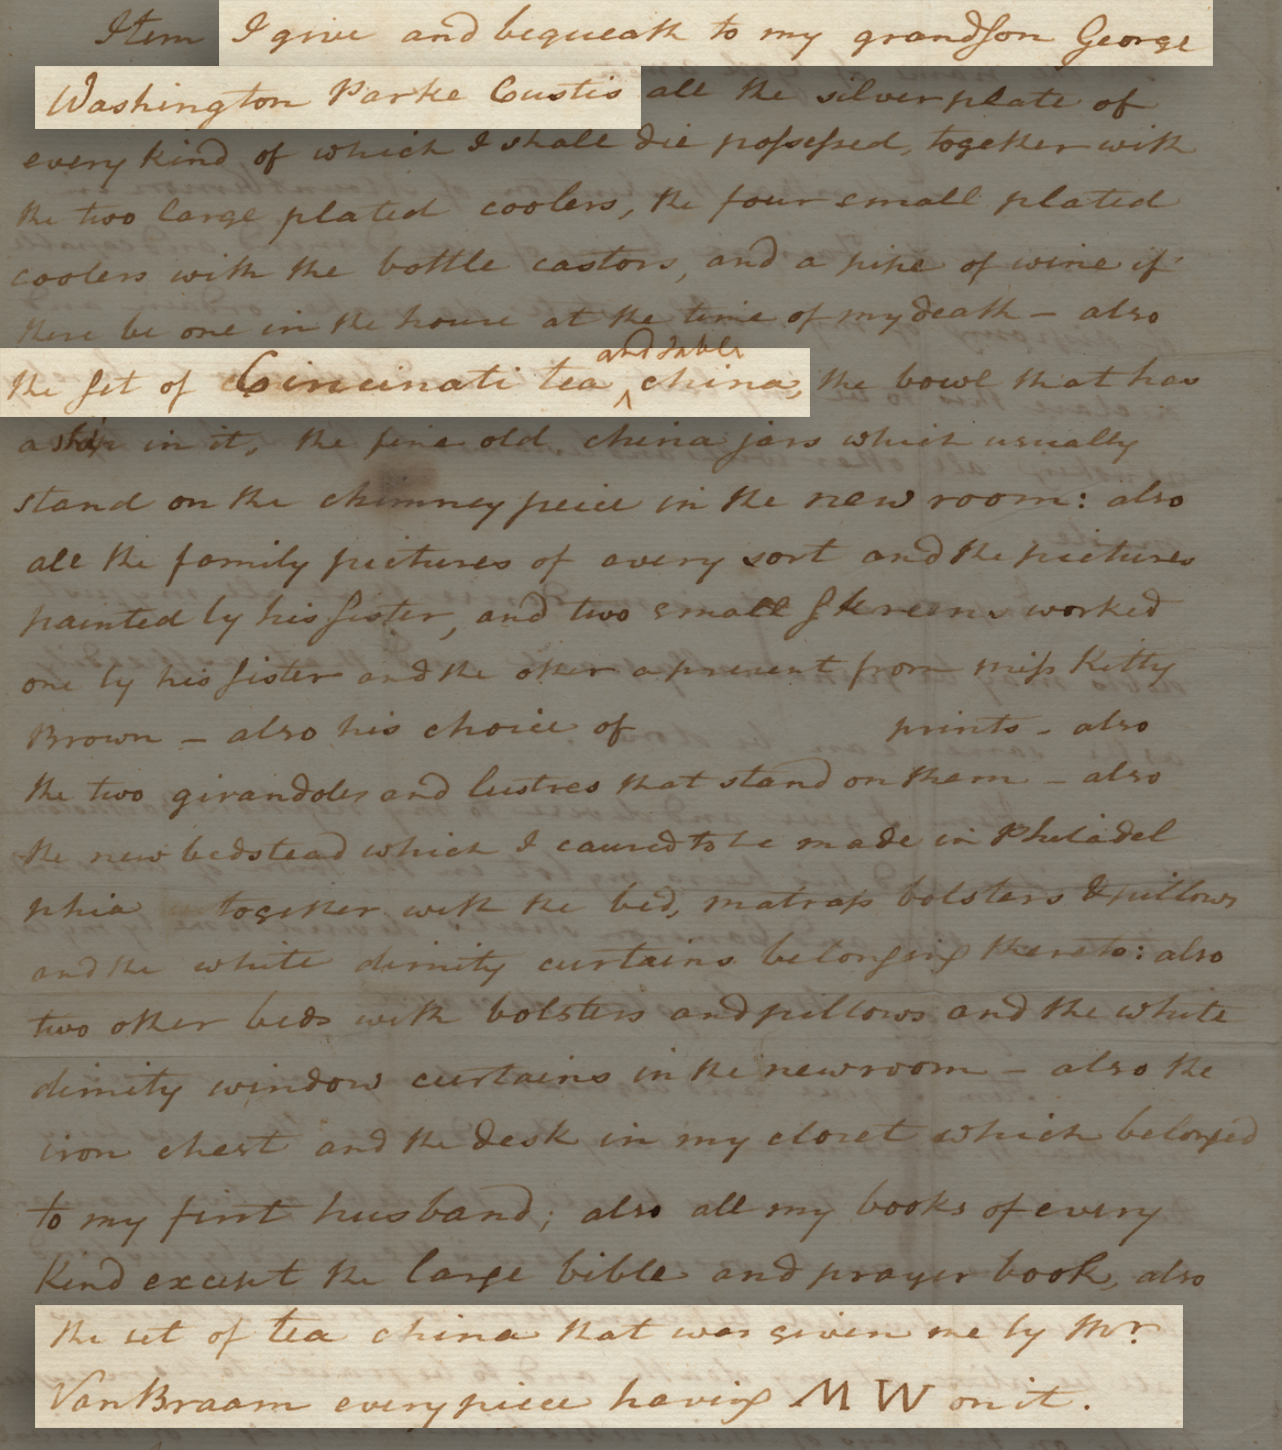 Item I give and bequeath to my grandson George
Washington Parke Custis all the silver plate of
every kind of which I shall die possessed, together with
the two large plated coolers, the four small plated
coolers with the bottle castors, and a pipe of wine if
there be one in the house at the time of my death – also
the set of Cincinati tea and table china, the bowl that has
a ship in it, the fine old china jars which usually
stand on the chimney peice in the new room: also
all the family pictures of every sort and the pictures
painted by his sister, and two small skreens worked
one by his sister and the other a present from miss Kitty
Brown – also his choice of prints – also
the two girandoles and lustres that stand on them – also
the new bedstead which I caused to be made in Philadel
phia together with the bed, matrass bolsters & pillows
and the white dimity curtains belonging thereto: also
two other beds with bolsters and pillows and the white
dimity window curtains in the new room – also the
iron chest and the desk in my closet which belonged
to my first husband; also all my books of every
kind except the large bible and prayer book, also
the set of tea china that was given me by Mr.
VanBraam every piece having M W on it.